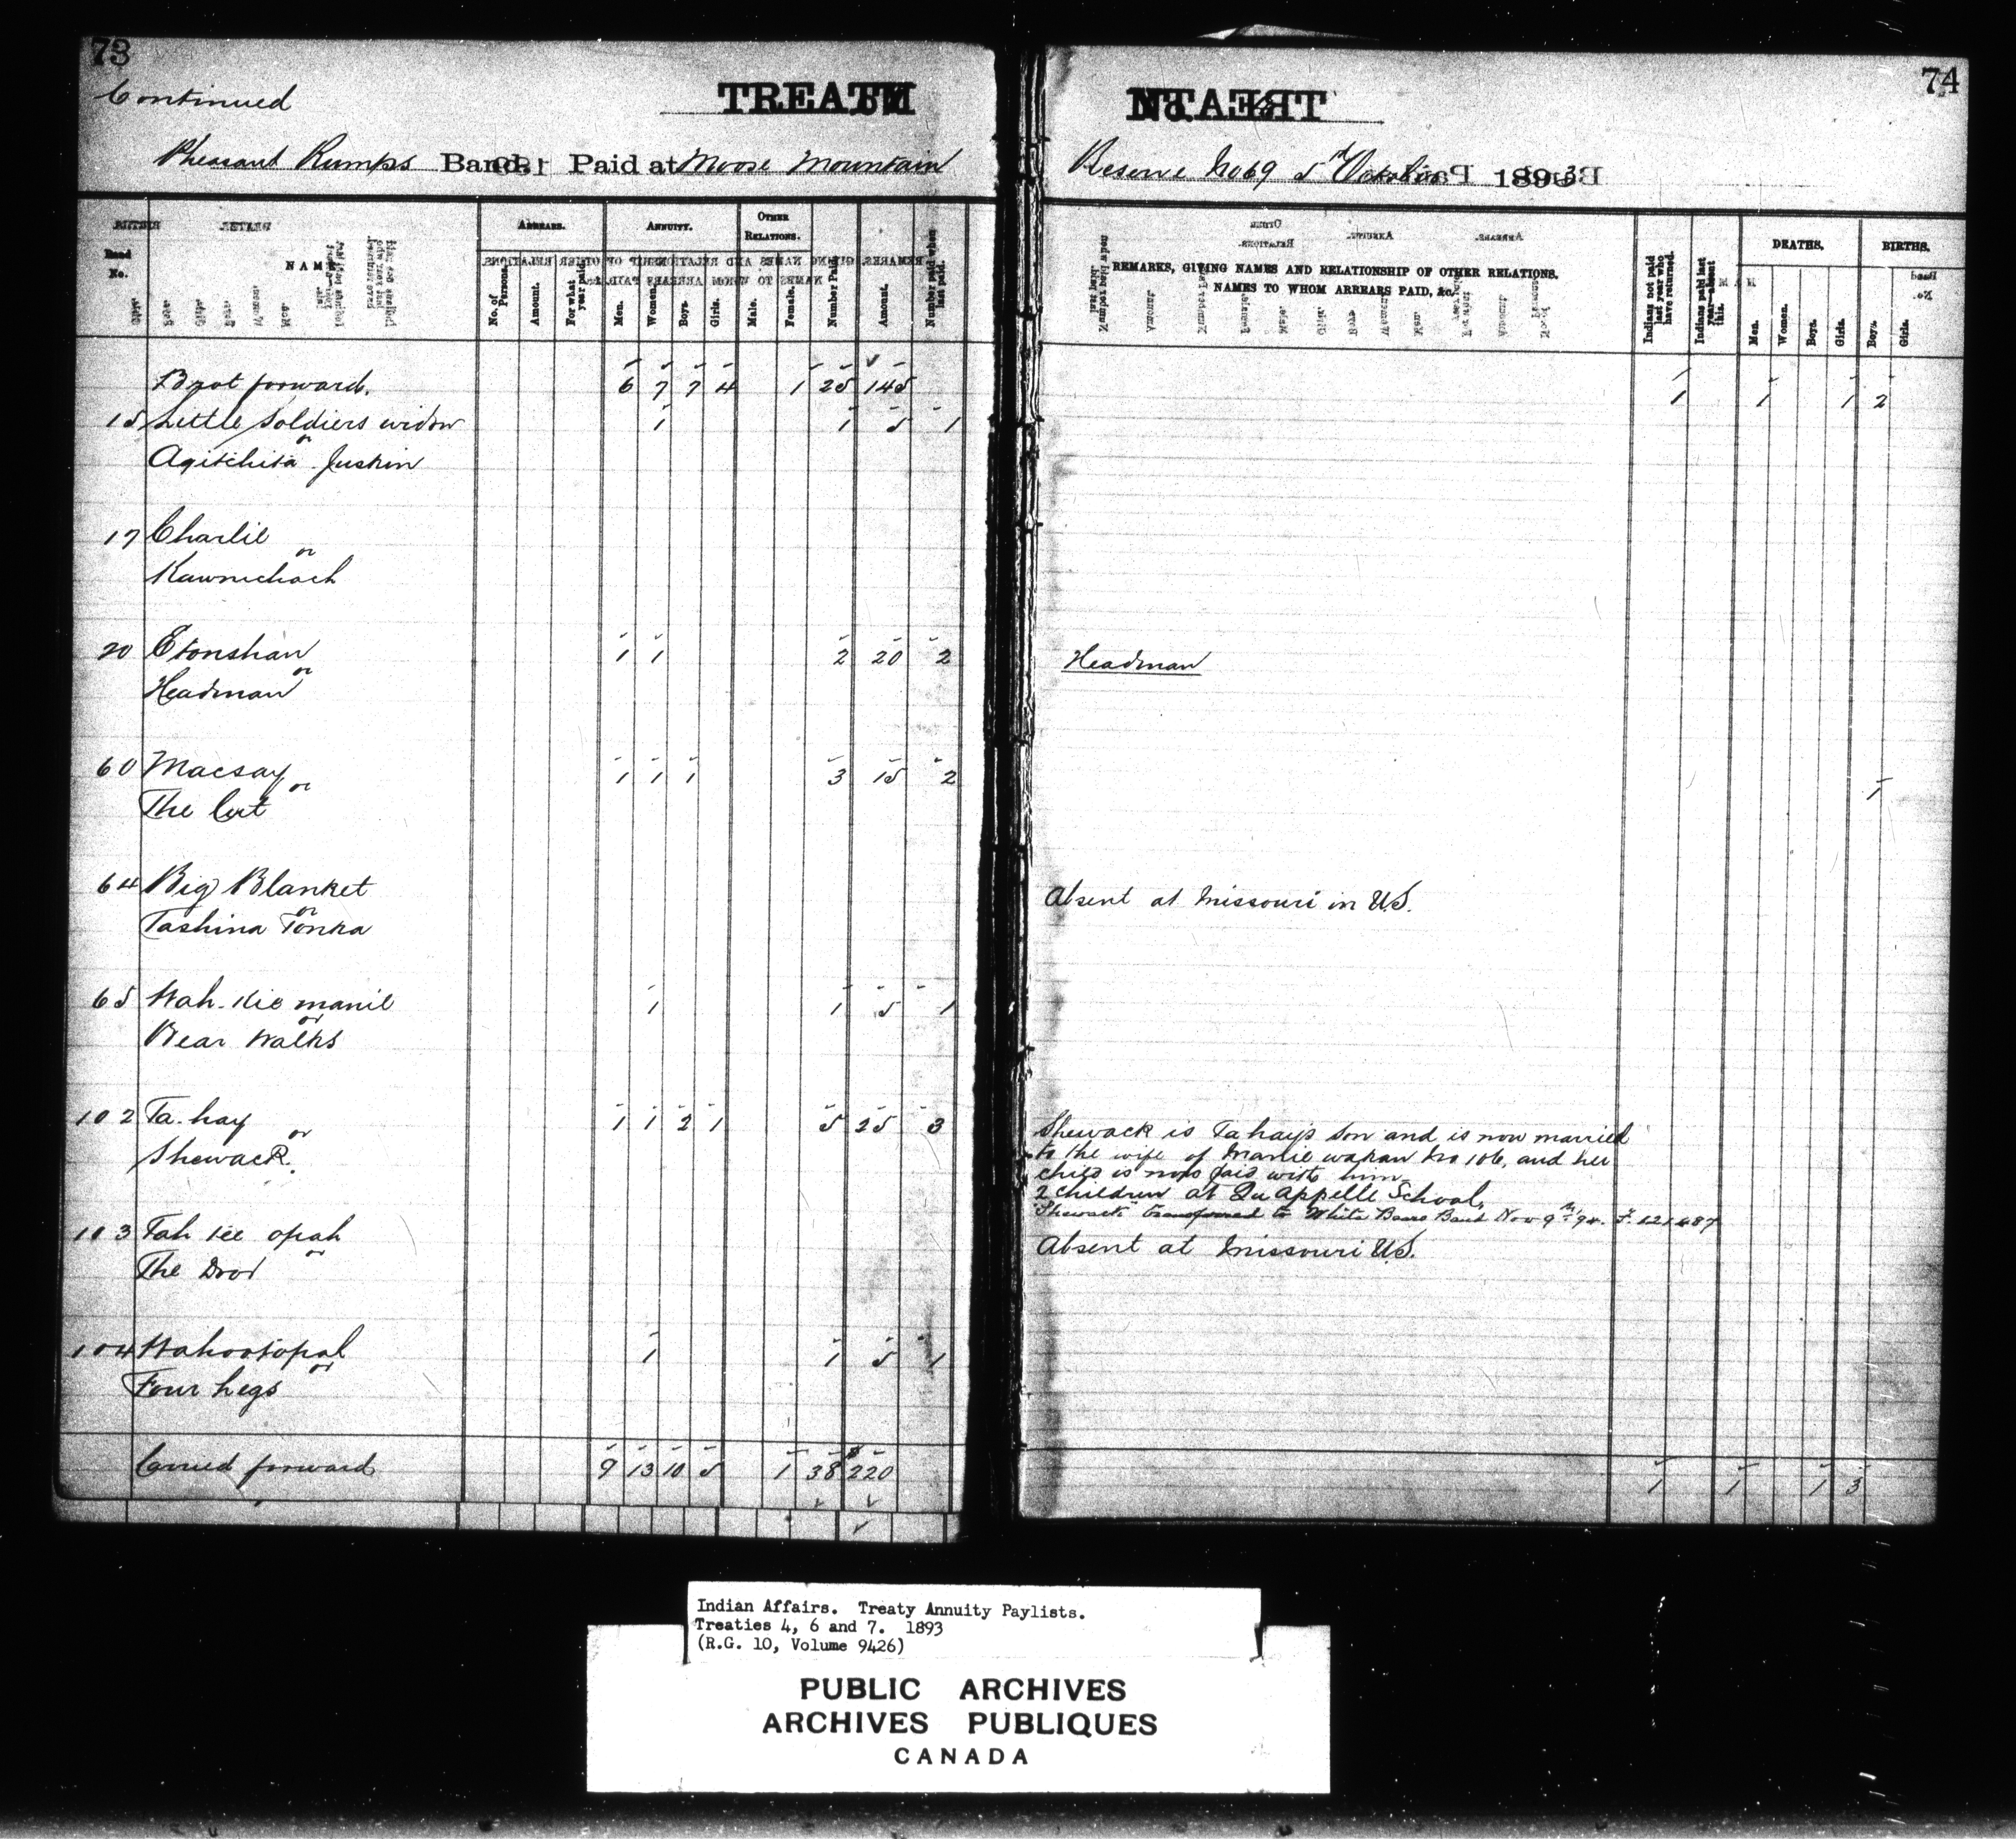 73
Continued
TREATY
Pheasant Rumps Band. Paid at Moose Mountain
Band No.
NAME
ARREARS.
No. of Persons.
Amount.
For what year paid.
ANNUITY.
Men.
Women.
Boys.
Girls.
OTHER RELATIONS.
Male.
Female.
Number Paid.
Amount.
Number paid when last paid.
Brot forward. 6 7 7 4 1 25 145
15 Little Soldiers widow 1 1 5 1
or
Agitchita Juskin
17 Charlie
or
Kawnichach
20 Etonshan 1 1 2 20 2
or
Headman
60 Macsay 1 1 1 3 15 2
or
The Cut
64 Big Blanket
or
Tashina Tonka
65 Wah-Kie manie 1 1 5 1
or
Bear Walks
102 Ta-hay 1 1 2 1 5 25 3
or
Shewack.
103 Tah kee opah
or
The Door
104 Wahootopah 1 1 5 1
or
Four Legs
Carried forward 9 13 10 5 1 38 220
74
No.
Reserve No 69 5th October 1893
REMARKS, GIVING NAMES AND RELATIONSHIP OF OTHER RELATIONS.
NAMES TO WHOM ARREARS PAID, &c.
Indians not paid last year who have returned.
Indians paid last year absent this.
DEATHS.
Men.
Women.
Boys.
Girls.
BIRTHS.
Boys.
Girls.
1 1 1 2
Headman
1
Absent at Missouri in U.S.
Shewack is Ta hay's son and is now married
to the wife of Wakan No 106, and her
child is now paid with him
2 children at Qu'appelle School,
Shewack transferred to White Bears Band Nov 9th/94. F. 121487
Absent at Missouri U.S.
1 1 1 3
Indian Affairs. Treaty Annuity Paylists.
Treaties 4, 6 and 7. 1893
(R.G. 10, Volume 9426)
PUBLIC ARCHIVES
ARCHIVES PUBLIQUES
CANADA